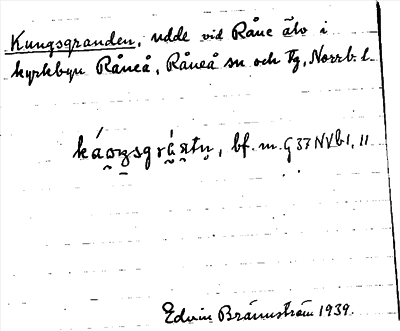 Kungsgranden, udde vid Råne älv i
kyrkbyn Råneå, Råneå sn och tg, Norrb. l.
bf. m. G 33 NVb1, 11
Edvin Brännström 1939.